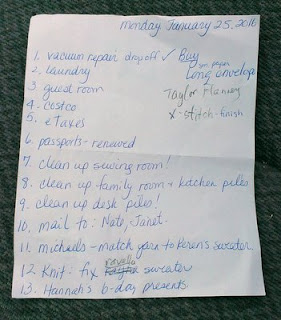 Monday January 25, 2016
1. vacuum repair drop off ✓ Buy
sm paper
2. laundry Long envelope
3. guest room Taylor Planning
4. costco X-stitch-finish
5. etaxes
6. passports - renewed
7. clean up sewing room!
8. clean up family room + kitchen piles
9. clean up desk piles!
10. mail to: Nate, Janet.
11. michaels - match yarn to Karen's sweater
12. Knit: fix sweater
13. Hannah's b-day presents